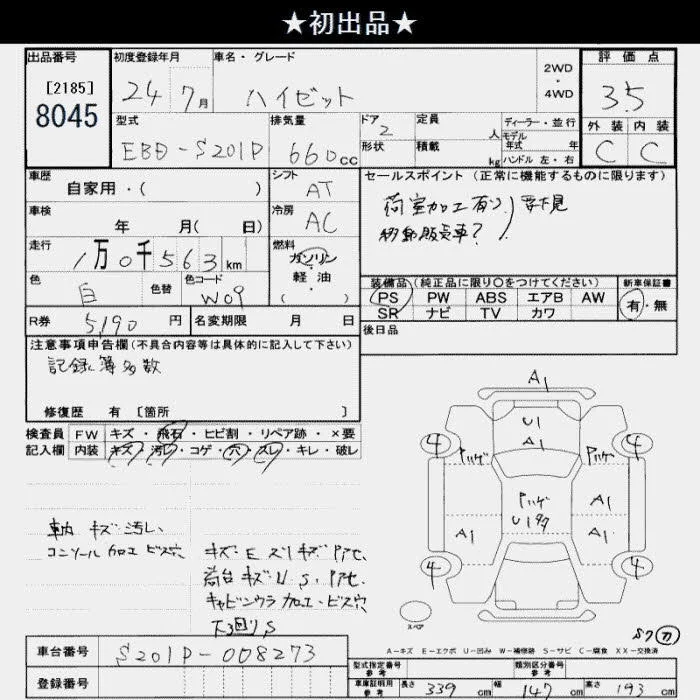 ★初出品★
出品番号 初度登録年月 車名・グレード 2WD・4WD 評価点
[2185]
8045
24 7月 ハイゼット 3.5
型式 排気量 ドア 定員 人 ディーラー・並行 外装 内装
EBD-S201P 660cc 2 形状 積載 kg モデル年式 年 ハンドル 左・右 C C
車歴 自家用・( ) シフト AT セールスポイント (正常に機能するものに限ります)
車検 年 月( 日) 冷房 AC 荷室加工有り 要下見
移動販売車?
走行 1万0千563km 燃料 ガソリン・軽油・( )
色 白 色替 色コード W09
装備品 (純正品に限り○をつけてください) 新車保証書
PS PW ABS エアB AW 有・無
SR ナビ TV カワ
R券 5,190円 名変期限 月 日 後日品
注意事項申告欄 (不具合内容等は具体的に記入して下さい)
記録簿多数
修復歴 有 [箇所 ]
検査員 FW キズ・飛石・ヒビ割・リペア跡・×要
記入欄 内装 キズ・汚レ・コゲ・穴・スレ・キレ・破レ
A1
U1
A1
4 4
A1
A1 A1
4 4
スペア
車内 キズ汚レ、
コンソール加工ビス穴
キャビンウラ加工・ビス穴
下廻りS
A-キズ E-エクボ U-凹み W-補修跡 S-サビ C-腐食 XX-交換済
車台番号 S201P-008273
登録番号
型式指定番号 参考 類別区分番号 参考
車庫証明用 参考 長さ 339cm 幅 147cm 高さ 193cm